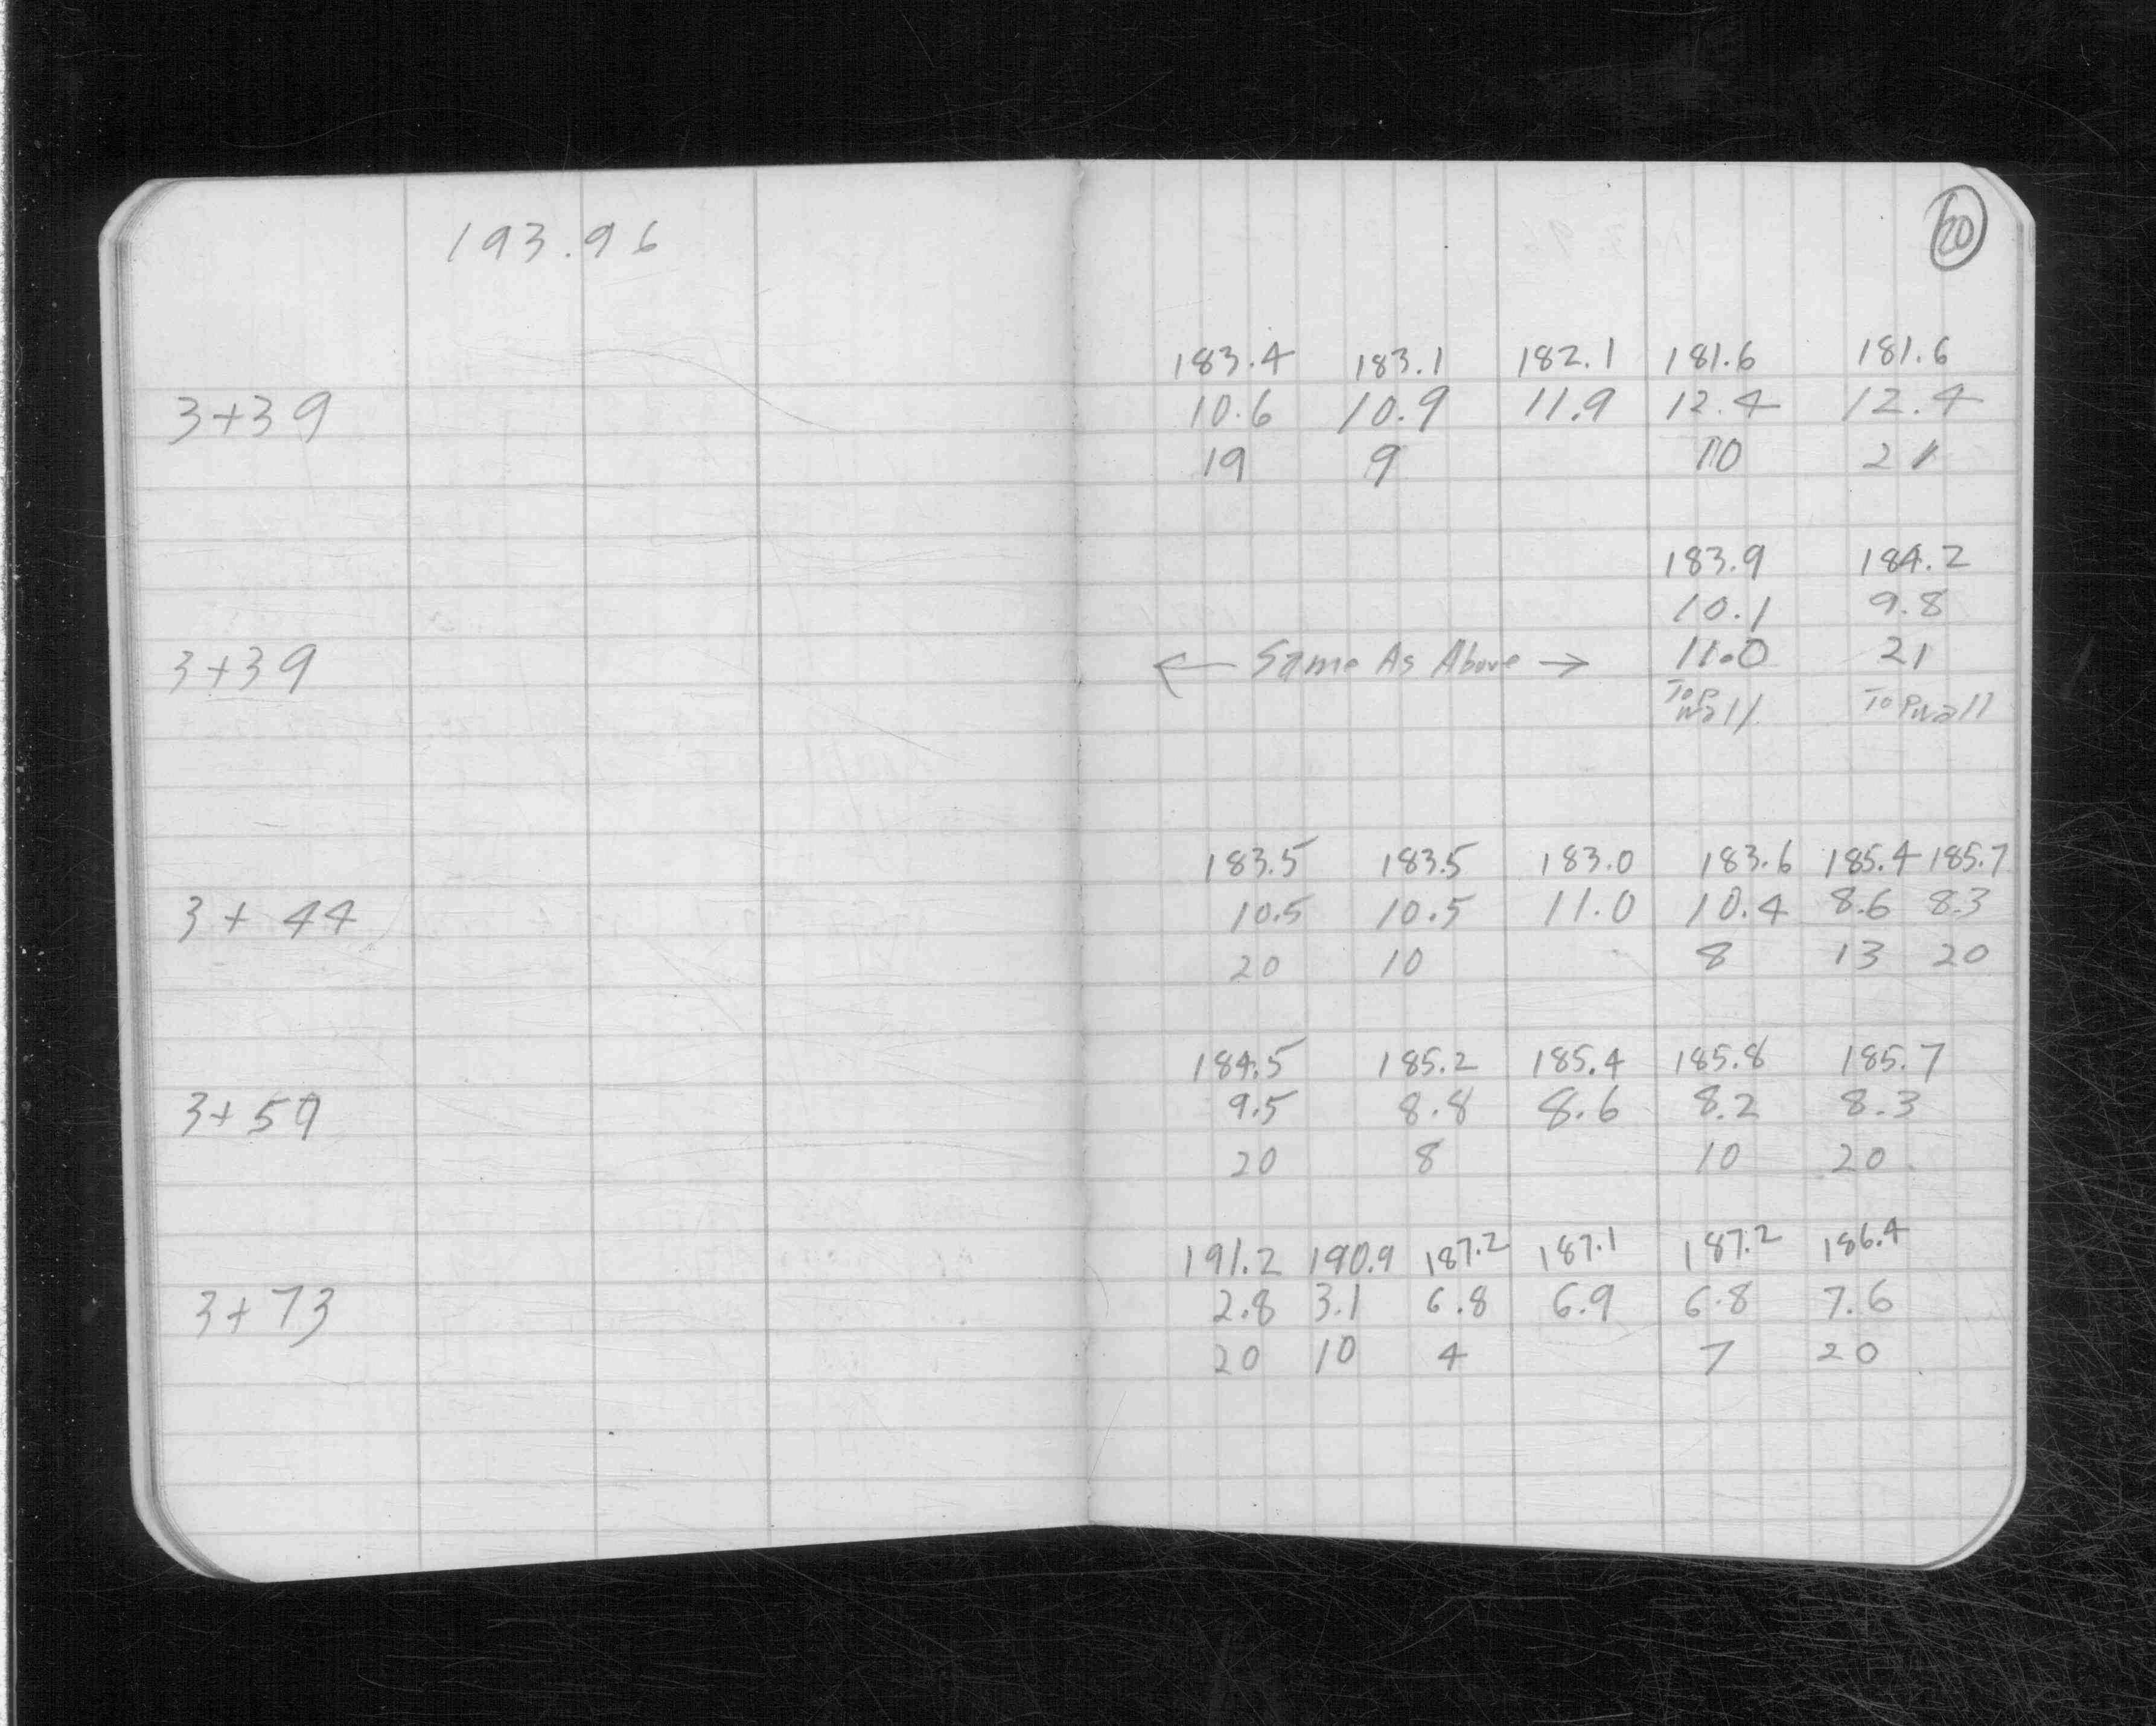 193.96
20
183.4 183.1 182.1 181.6 181.6
3+39 10.6 10.9 11.9 12.4 12.4
19 9 10 21
183.9 184.2
10.1 9.8
3+39 ← Same As Above → 11.0 21
Top Wall Top Wall
183.5 183.5 183.0 183.6 185.4 185.7
3+44 10.5 10.5 11.0 10.4 8.6 8.3
20 10 8 13 20
184.5 185.2 185.4 185.8 185.7
3+59 9.5 8.8 8.6 8.2 8.3
20 8 10 20
191.2 190.9 187.2 187.1 187.2 186.4
3+73 2.8 3.1 6.8 6.9 6.8 7.6
20 10 4 7 20